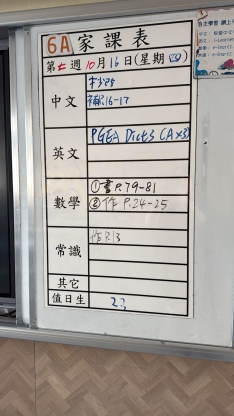 6A 家課表
第七週10月16日(星期四)
中文
補16-17
英文
PGEA Dicts CAx3
數學
①書P.79-81
②作P.24-25
常識
作P.13
其它
值日生
23